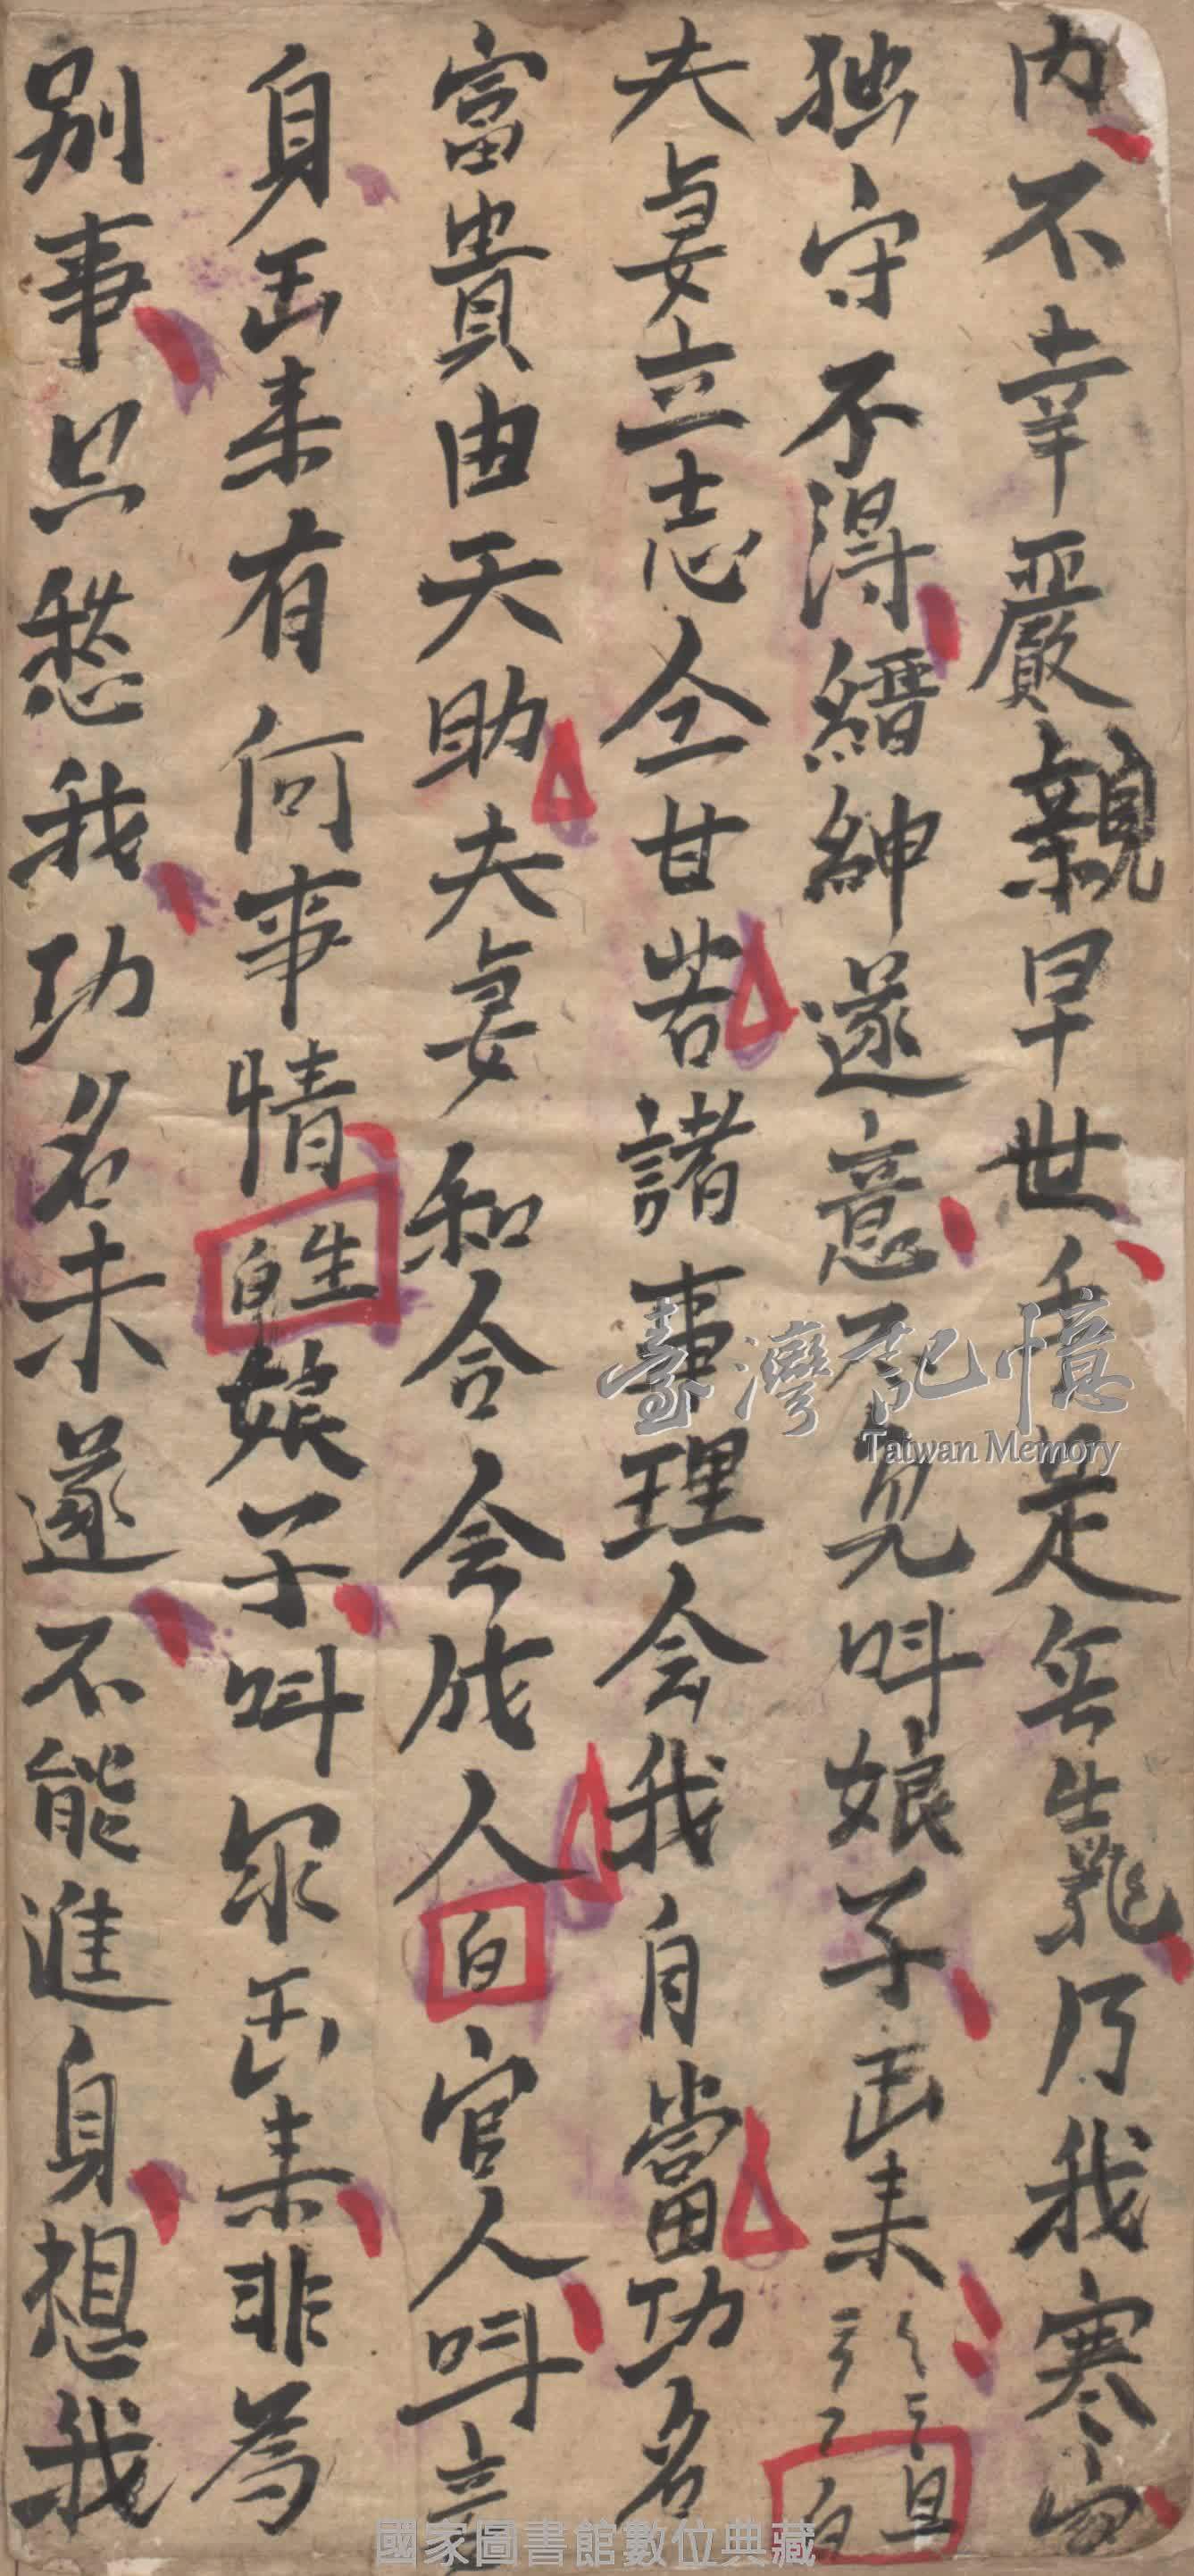 内不幸嚴親早世千是兵生亂乃我寒窗
独守不得縉紳遂意不免叫娘子出来旦白
夫妻立志仝甘苦諸事理会我自當功名
富貴由天助夫妻和合会成人白官人叫
身出来有何事情生白娘子叫你出来非為
别事只愁我功名未遂不能進身想我
臺灣記憶
Taiwan Memory
國家圖書館數位典藏